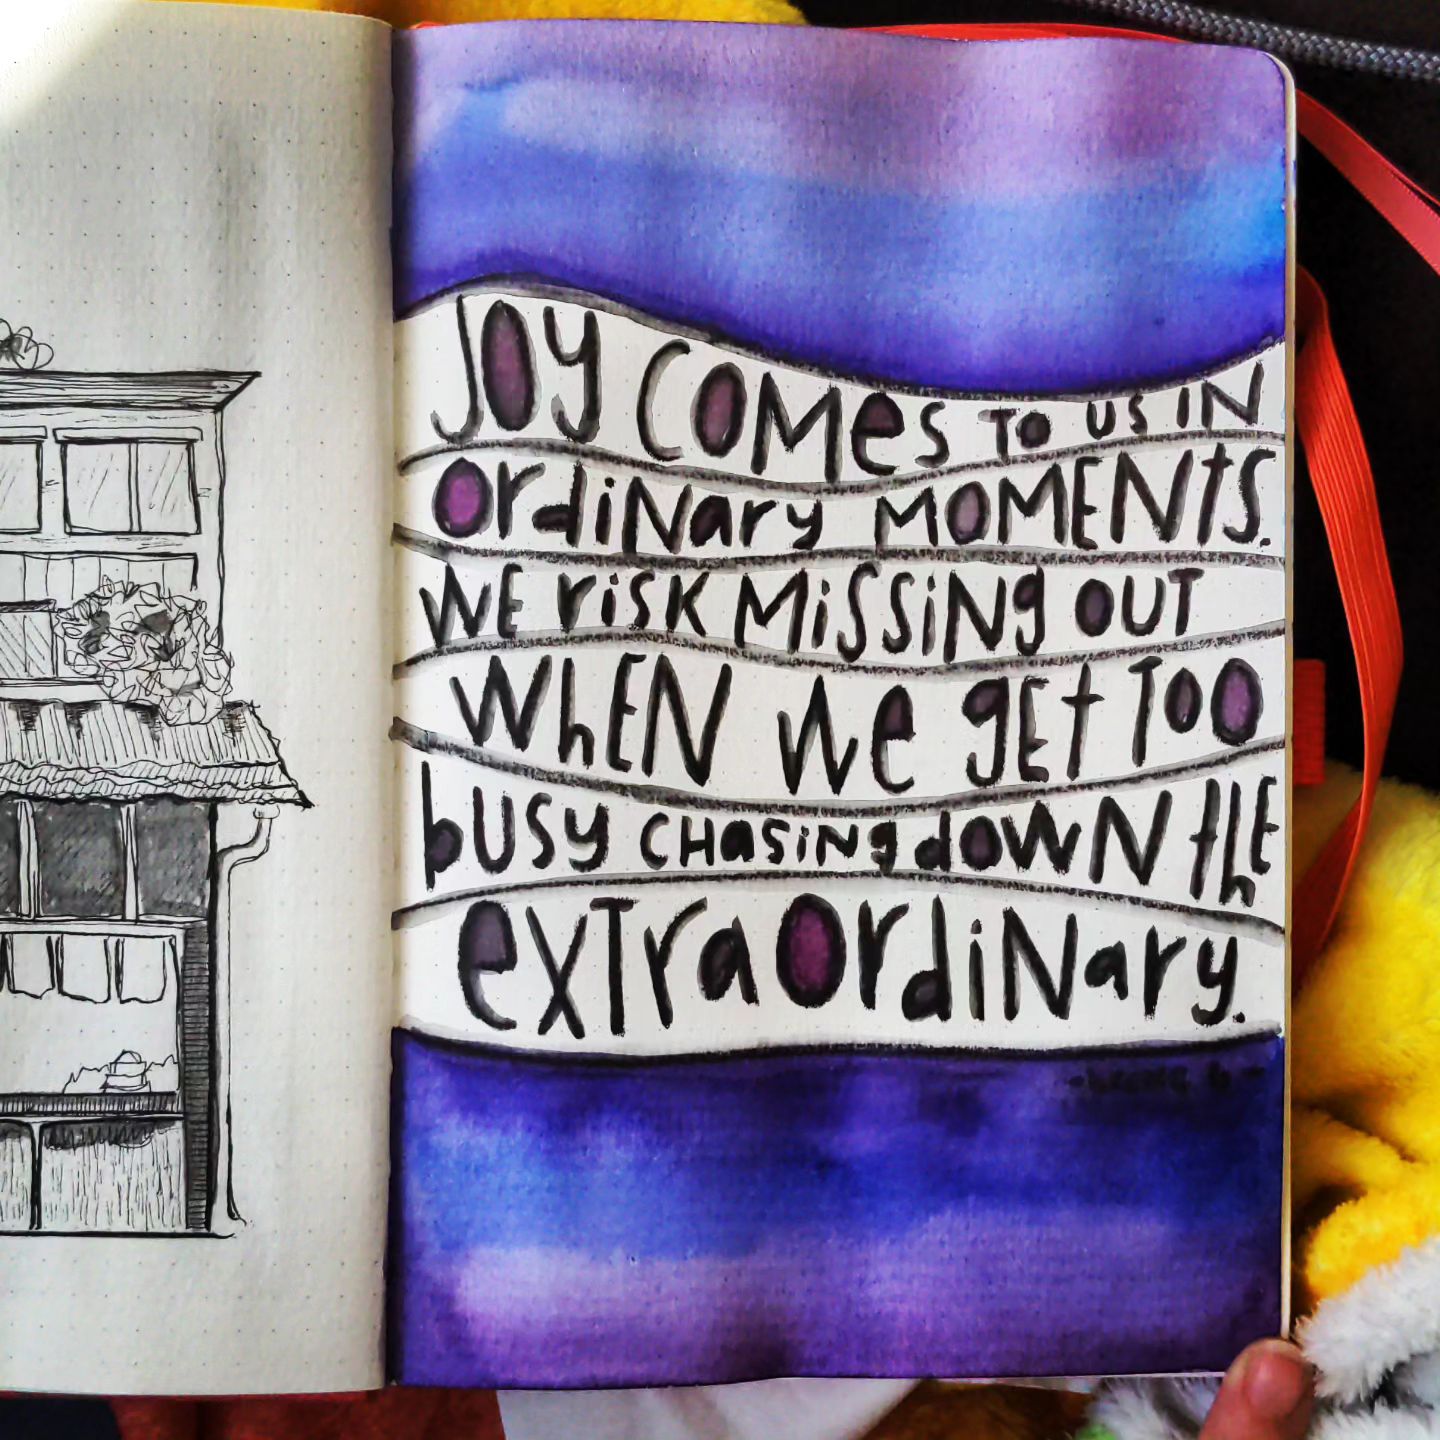 JOY COMES TO US IN
ORdiNARY MOMENTS.
WE RiSK MiSSiNG OUT
WhEN We gEt TOO
bUSY CHasiNg dOWN thE
eXTRaORdiNaRY.